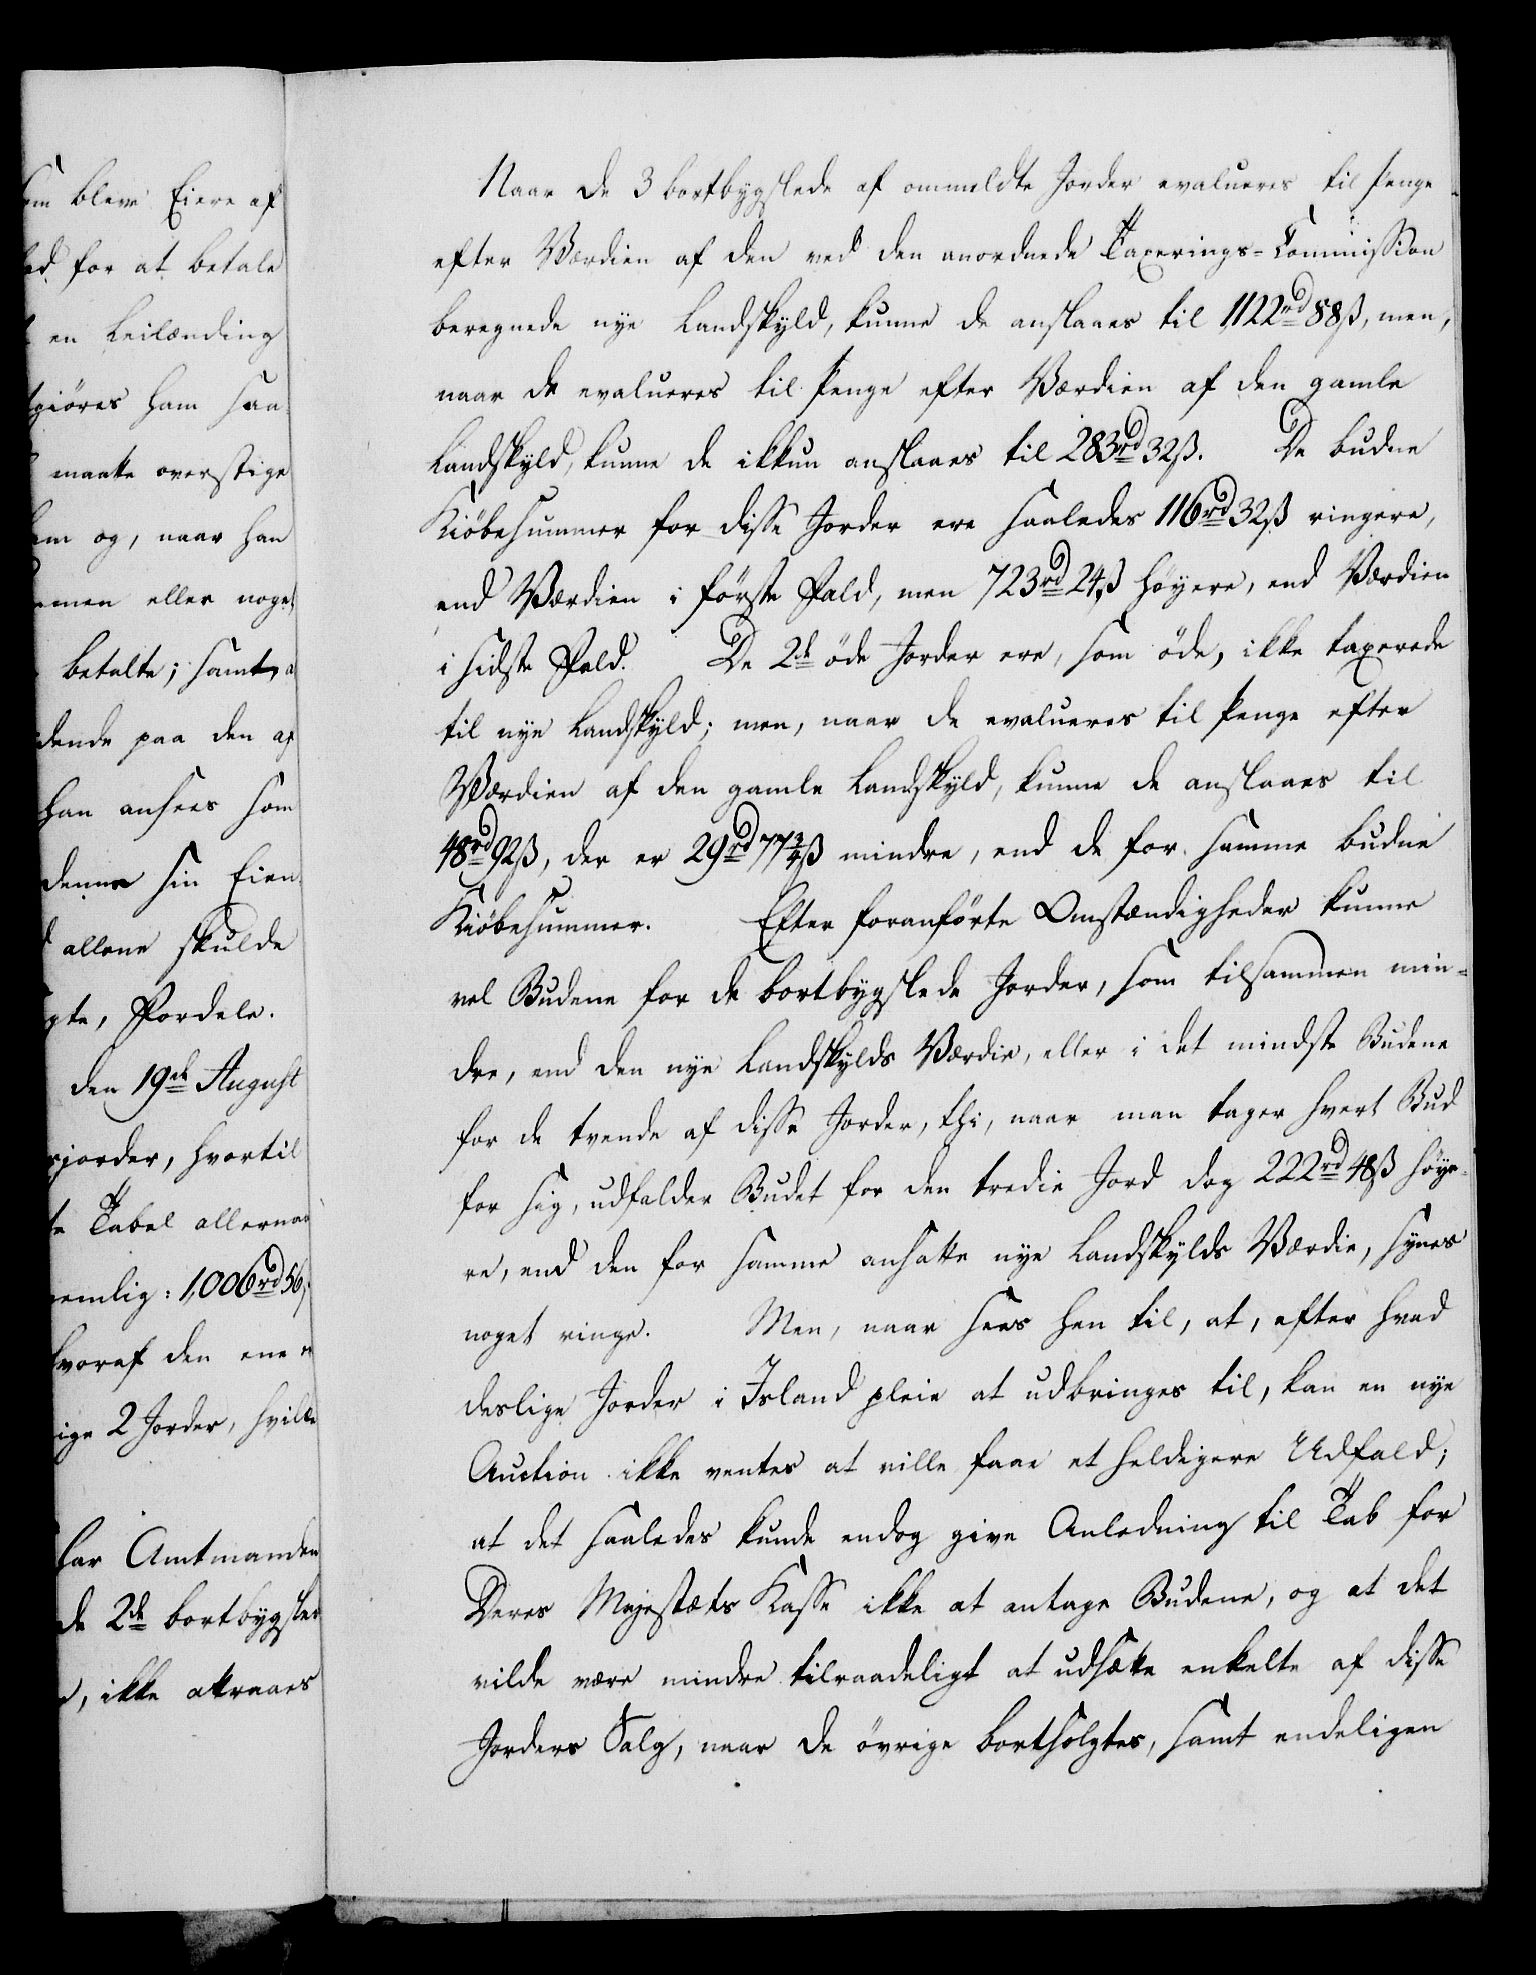 em bleve Eiere af
ed for at betale
en Leilænding
giöres ham saa
maatte overstige
em og, naar han
men eller noget
betalte; samt
dende paa den af
han ansees som
denne sin Eien
allene skulde
gte, Fordele.
den 19de August
sjorder, hvortil
te Tabel allerna
nemlig: 1,006rd 56
hvoraf den ene
ige 2 Jorder, hvilke
har Amtmanden
de 2de bortbygsle
, ikke attraaes
Naar de 3 bortbygslede af ommeldte Jorder evalueres til Penge
efter Værdien af den ved den anordnede Taxerings-Commission
beregnede nye Landskyld, kunne de anslaaes til 1122rd 88ß, men,
naar de evalueres til Penge efter Værdien af den gamle
Landskyld, kunne de ikkun anslaaes til 283rd 32ß. De budne
Kiöbesummer for disse Jorder ere saaledes 116rd 32ß ringere,
end Værdien i förste Fald, men 723rd 24ß höyere, end Værdien
i sidste Fald. De 2de öde Jorder ere, som öde, ikke taxerede
til nye Landskyld; men, naar de evalueres til Penge efter
Værdien af den gamle Landskyld, kunne de anslaaes til
48rd 92ß, der er 29rd 77¾ß mindre, end de for samme budne
Kiöbesummer. Efter foranförte Omstændigheder kunne
vel Budene for de bortbygslede Jorder, som tilsammen min-
dre, end den nye Landskylds Værdie, eller i det mindste Budene
for de tvende af disse Jorder, thi, naar man tager hvert Bud
for sig, udfalder Budet for den tredie Jord dog 222rd 48ß höye-
re, end den for samme ansatte nye Landskylds Værdie, synes
noget ringe. Men, naar sees hen til, at, efter hvad
deslige Jorder i Island pleie at udbringes til, kan en nye
Auction ikke ventes at ville faae et heldigere Udfald;
at det saaledes kunde endog give Anledning til Tab for
Deres Majestæts Kasse ikke at antage Budene, og at det
vilde være mindre tilraadeligt at udsætte enkelte af disse
Jorders Salg, naar de övrige bortsolgtes, samt endeligen